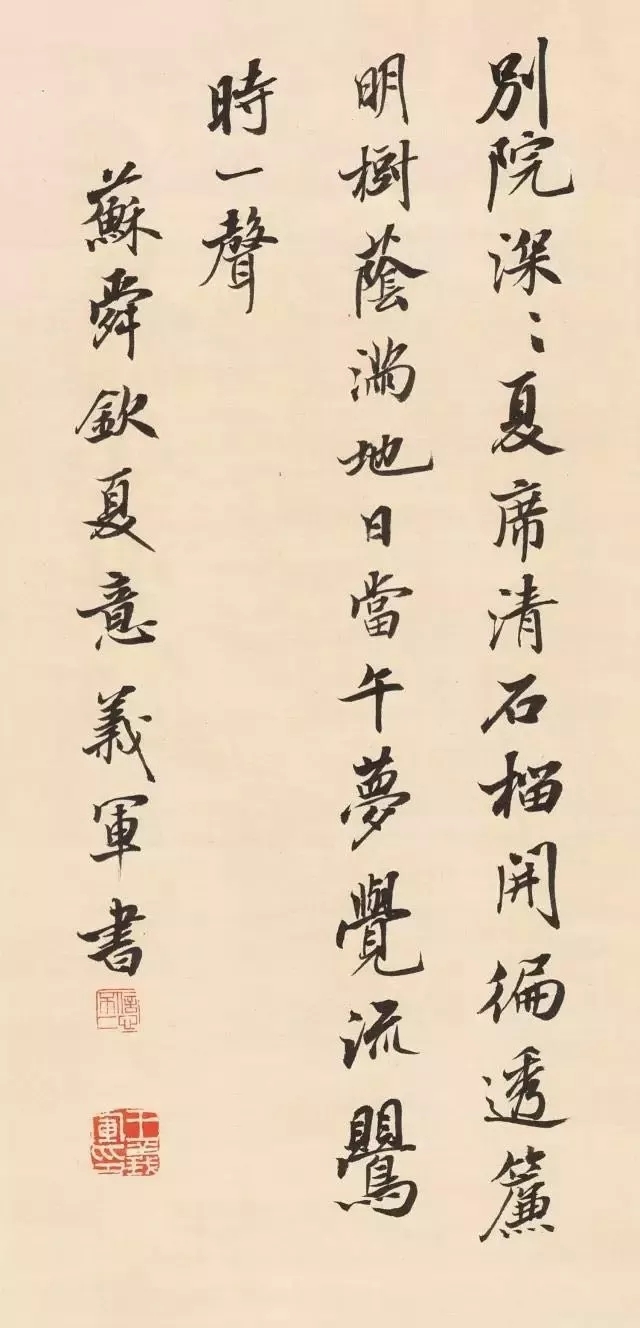 別院深〻夏席清石榴開徧透簾
明樹蔭滿地日當午夢覺流鶯
時一聲
蘇舜欽夏意義軍書
王義軍印